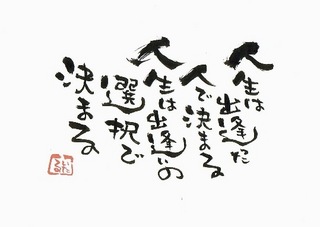 人生は
出逢った
人で決まる
人生は出逢いの
選択で
決まる